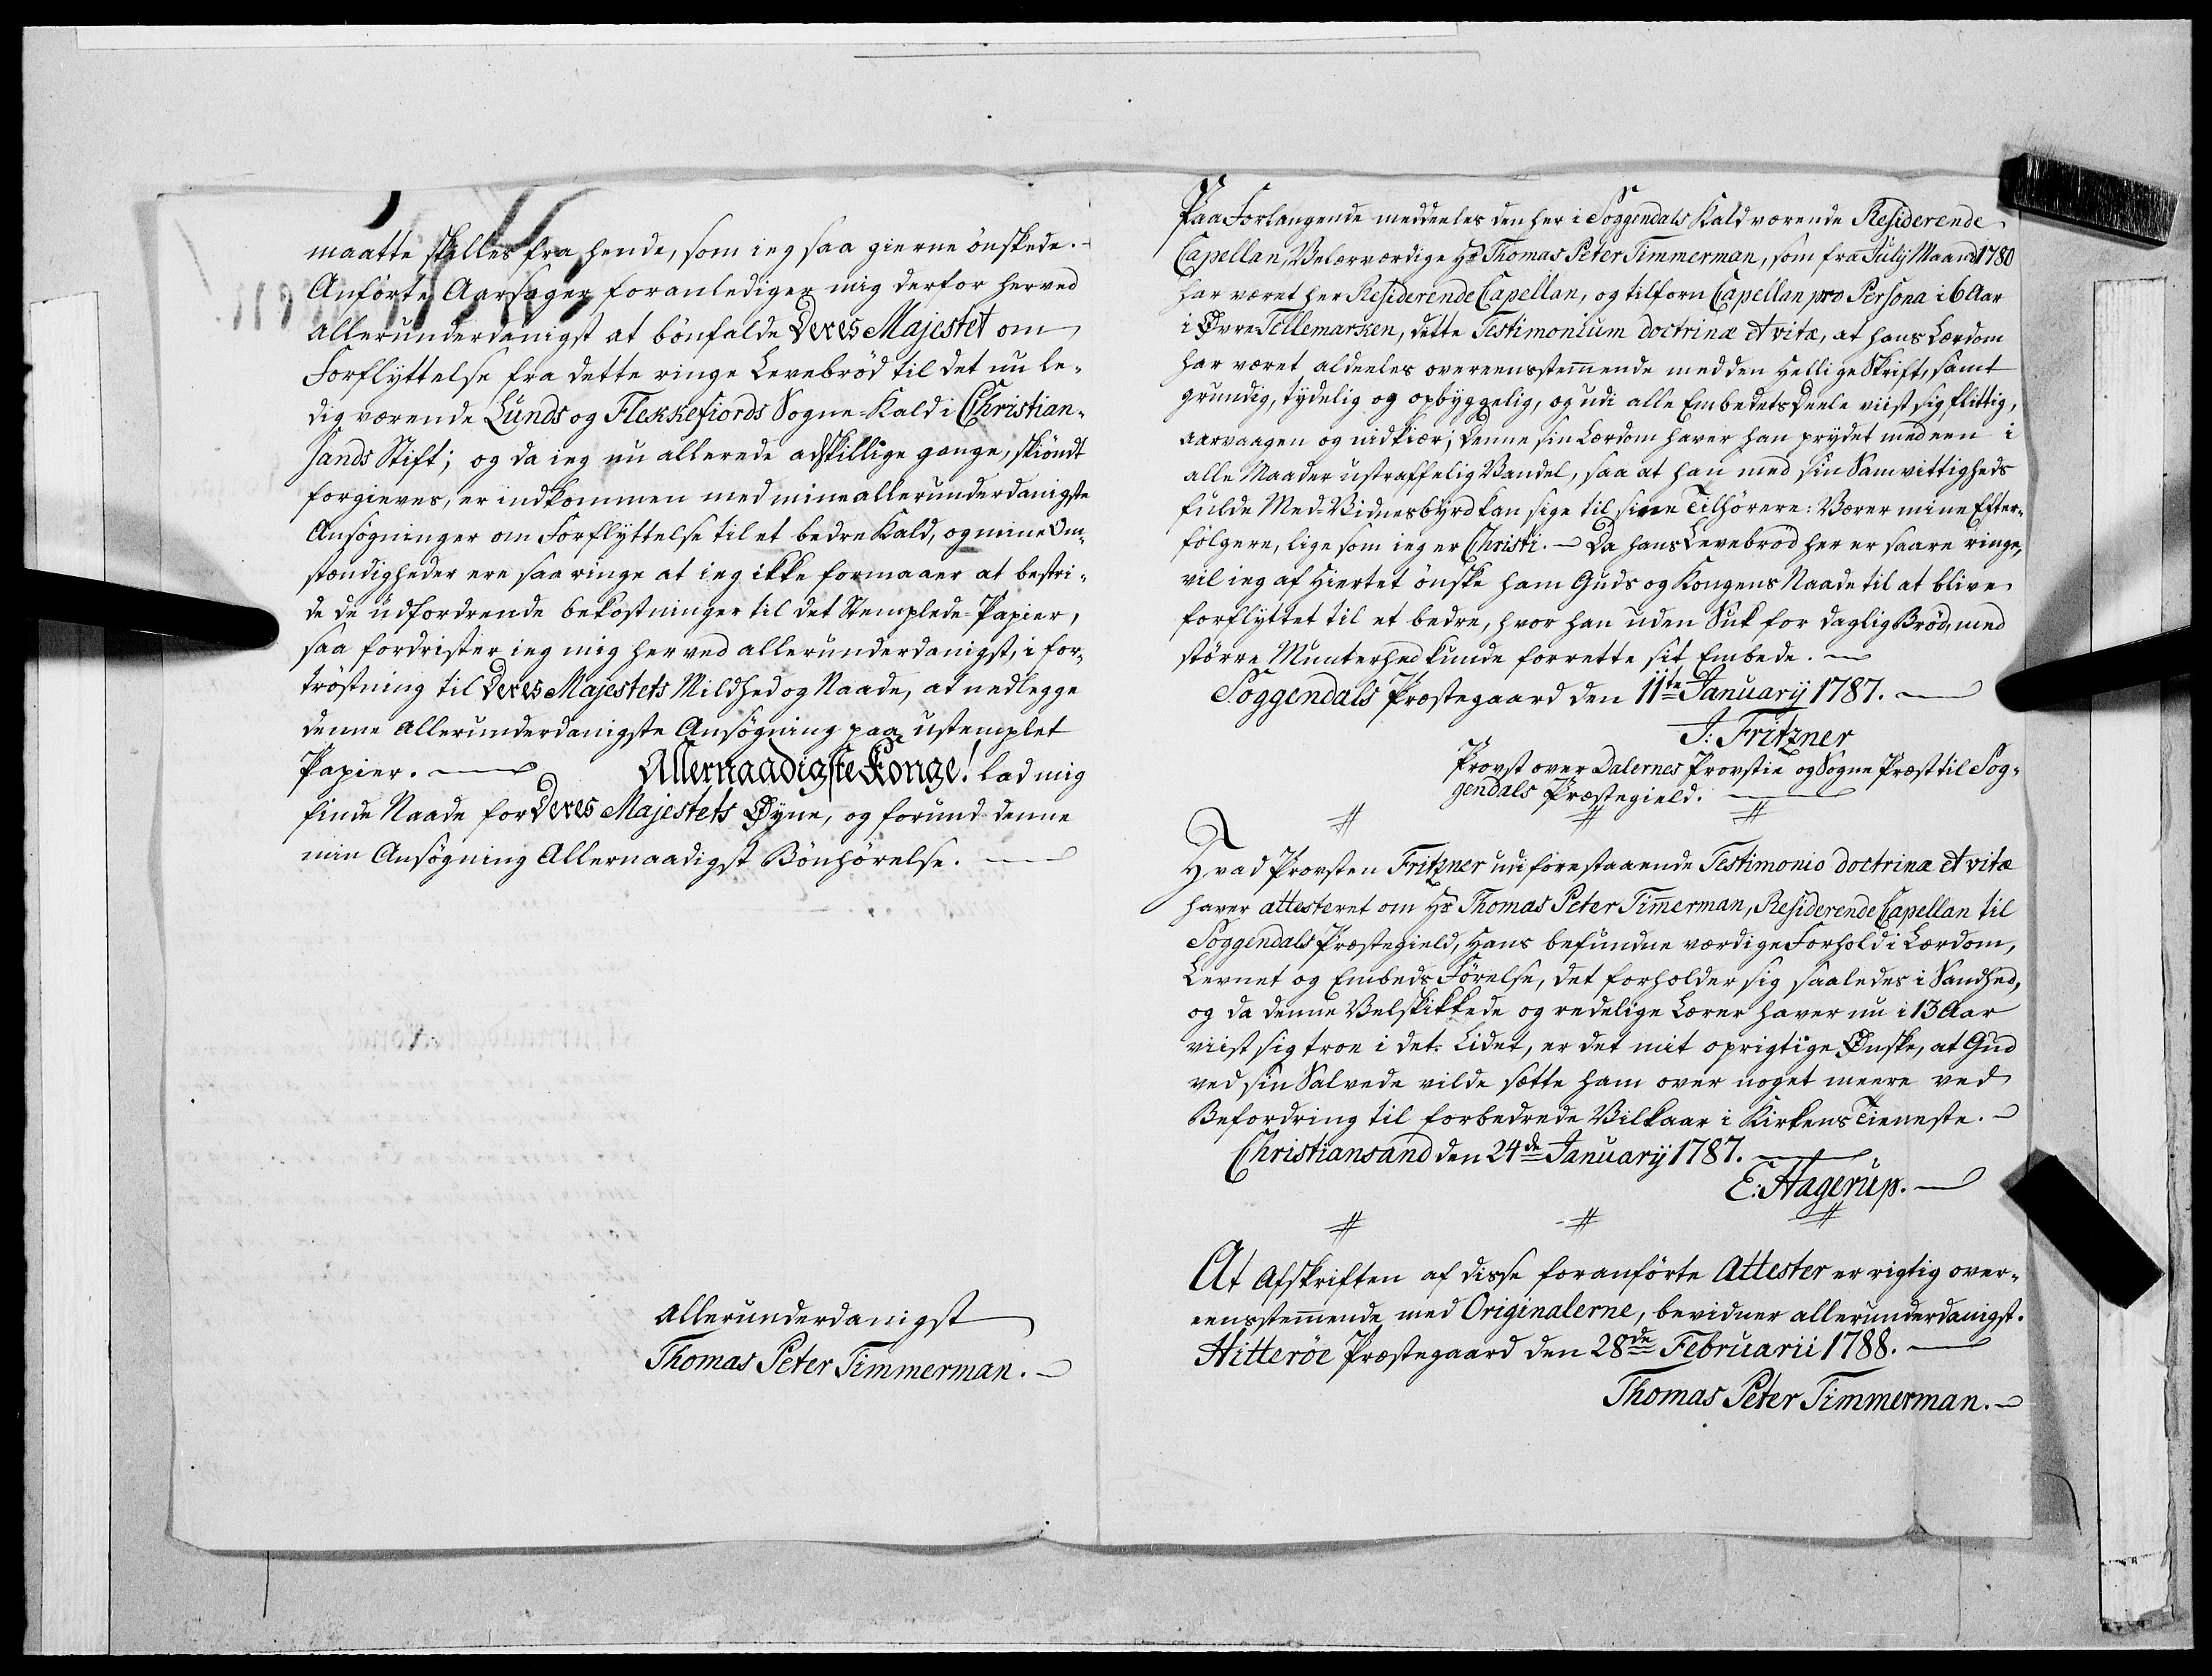 maatte skilles fra hende, som ieg saa gierne ønskede.
Anførte Aarsager foranlediger mig derfor herved
allerunderdanigst at bønfalde Deres Majestet om
Forflyttelse fra dette ringe Levebrød til det nu le-
dig værende Lunds og Flekkefiords Sogne-Kald i Christian-
sands Stift; og da ieg nu allerede adskillige gange, skiøndt
forgieves, er indkommen med mine allerunderdanigste
Ansøgninger om Forflyttelse til et bedre Kald, og mine Om-
stændigheder ere saa ringe at ieg ikke formaaer at bestri-
de de udfordrende bekostninger til det Stemplede-Papier,
saa fordrister ieg mig herved allerunderdanigst, i for-
trøstning til Deres Majestets Mildhed og Naade, at nedlegge
denne allerunderdanigste Ansøgning paa ustemplet
Papier. Allernaadigste Konge! lad mig
finde Naade for Deres Majestets Øyne, og forund denne
min Ansøgning Allernaadigst Bønhørelse.
allerunderdanigst
Thomas Peter Timmerman.
Paa Forlangende meddeeles den her i Soggendals Kald værende Residerende
Capellan, Velærværdige Hr Thomas Peter Timmerman, som fra Julij Maaned 1780
har været her Residerende Capellan, og tilforn Capellan pro Persona i 6 Aar
i Øvre Tellemarken, dette Testimonium doctrinæ et vitæ, at hans Lærdom
har været aldeeles overeensstemmende med den Hellige Skrift, samt
grundig, tydelig og opbyggelig, og udi alle Embedets Deele viist sig flittig,
aarvaagen og nidkiær; Denne sin Lærdom haver han prydet med een i
alle Maader ustraffelig Vandel, saa at han med sin Samvittigheds
fulde Med-Vidnesbyrd kan sige til sine Tilhørere: Værer mine Efter-
følgere, ligesom ieg er Christi. Da hans Levebrød her er saare ringe,
vil ieg af Hiertet ønske ham Guds og Kongens Naade til at blive
forflyttet til et bedre, hvor han uden Suk for daglig Brød, med
større Munterhed kunde forrette sit Embede.
Soggendals Præstegaard den 11te January 1787.
J: Fritzner
Provst over Dalernes Provstie og Sogne Præst til Sog-
gendals Præstegield.
# # #
Hvad Provsten Fritzner udi forestaaende Testimonio doctrinæ et vitæ
haver attesteret om Hr Thomas Peter Timmerman, Residerende Capellan til
Soggendals Præstegield, Hans befundne værdige Forhold i Lærdom,
Levnet og Embeds Førelse, det forholder sig saaledes i Sandhed,
og da denne Velskikkede og redelige Lærer haver nu i 13 Aar
viist sig troe i det Lidet, er det mit oprigtige Ønske, at Gud
ved sin Salvede vilde sætte ham over noget meere ved
Befordring til forbedrede Vilkaar i Kirkens Tieneste.
Christiansand den 24de January 1787.
E: Hagerup.
# # #
At Afskriften af disse foranførte Attester er rigtig over-
eensstemmende med Originalerne, bevidner allerunderdanigst.
Hitterøe Præstegaard den 28de Februarii 1788.
Thomas Peter Timmerman.